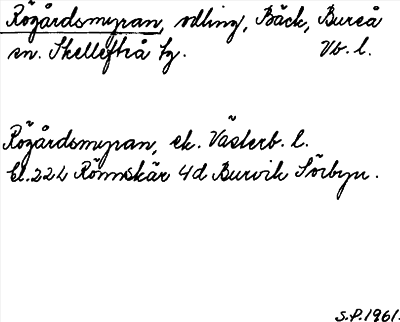 Rögårdsmyran, odling, Bäck, Bureå
sn. Skellefteå tg. Vb. l.
Rögårdsmyran, ek. Västerb. l.
Bl. 22L Rönnskär 4d Burvik Sörbyn.
S.P. 1961.